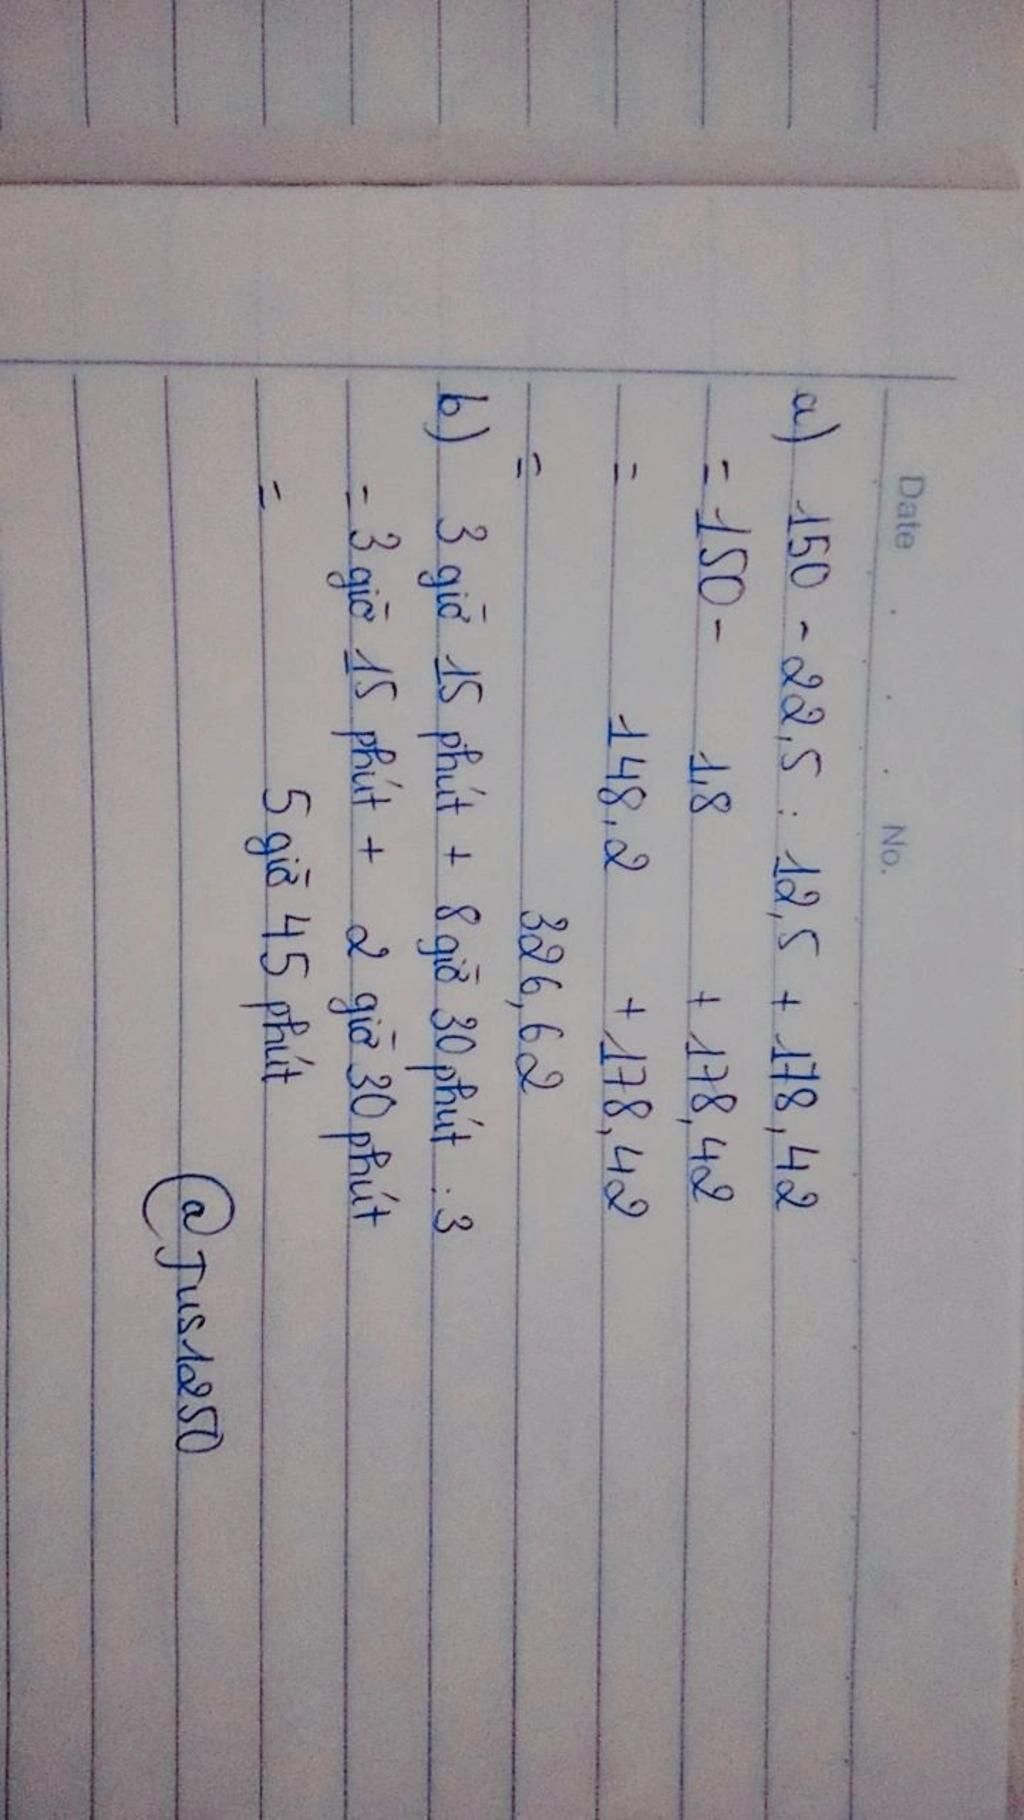 Date . . . No.
a) 150 - 22,5 : 12,5 + 178,42
= 150 - 1,8 + 178,42
= 148,2 + 178,42
= 326,62
b) 3 giờ 15 phút + 8 giờ 30 phút : 3
= 3 giờ 15 phút + 2 giờ 30 phút
= 5 giờ 45 phút
@Jus1250